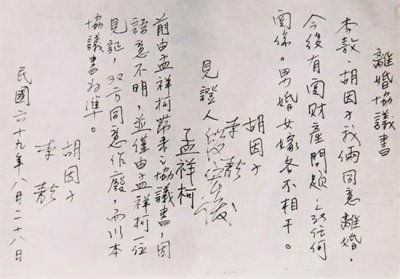 離婚協議書
李敖、胡因子我倆同意離婚。
今後有関財產問題任何
関係。男婚女嫁各不相干。
胡因子
李敖
見證人
孟祥柯
前由孟祥柯帶來之協議書,因
語意不明,並僅由孟祥柯一位
見証,双方同意作廢,而以本
協議書為準。
胡因子
李敖
民國六十九年八月二十八日